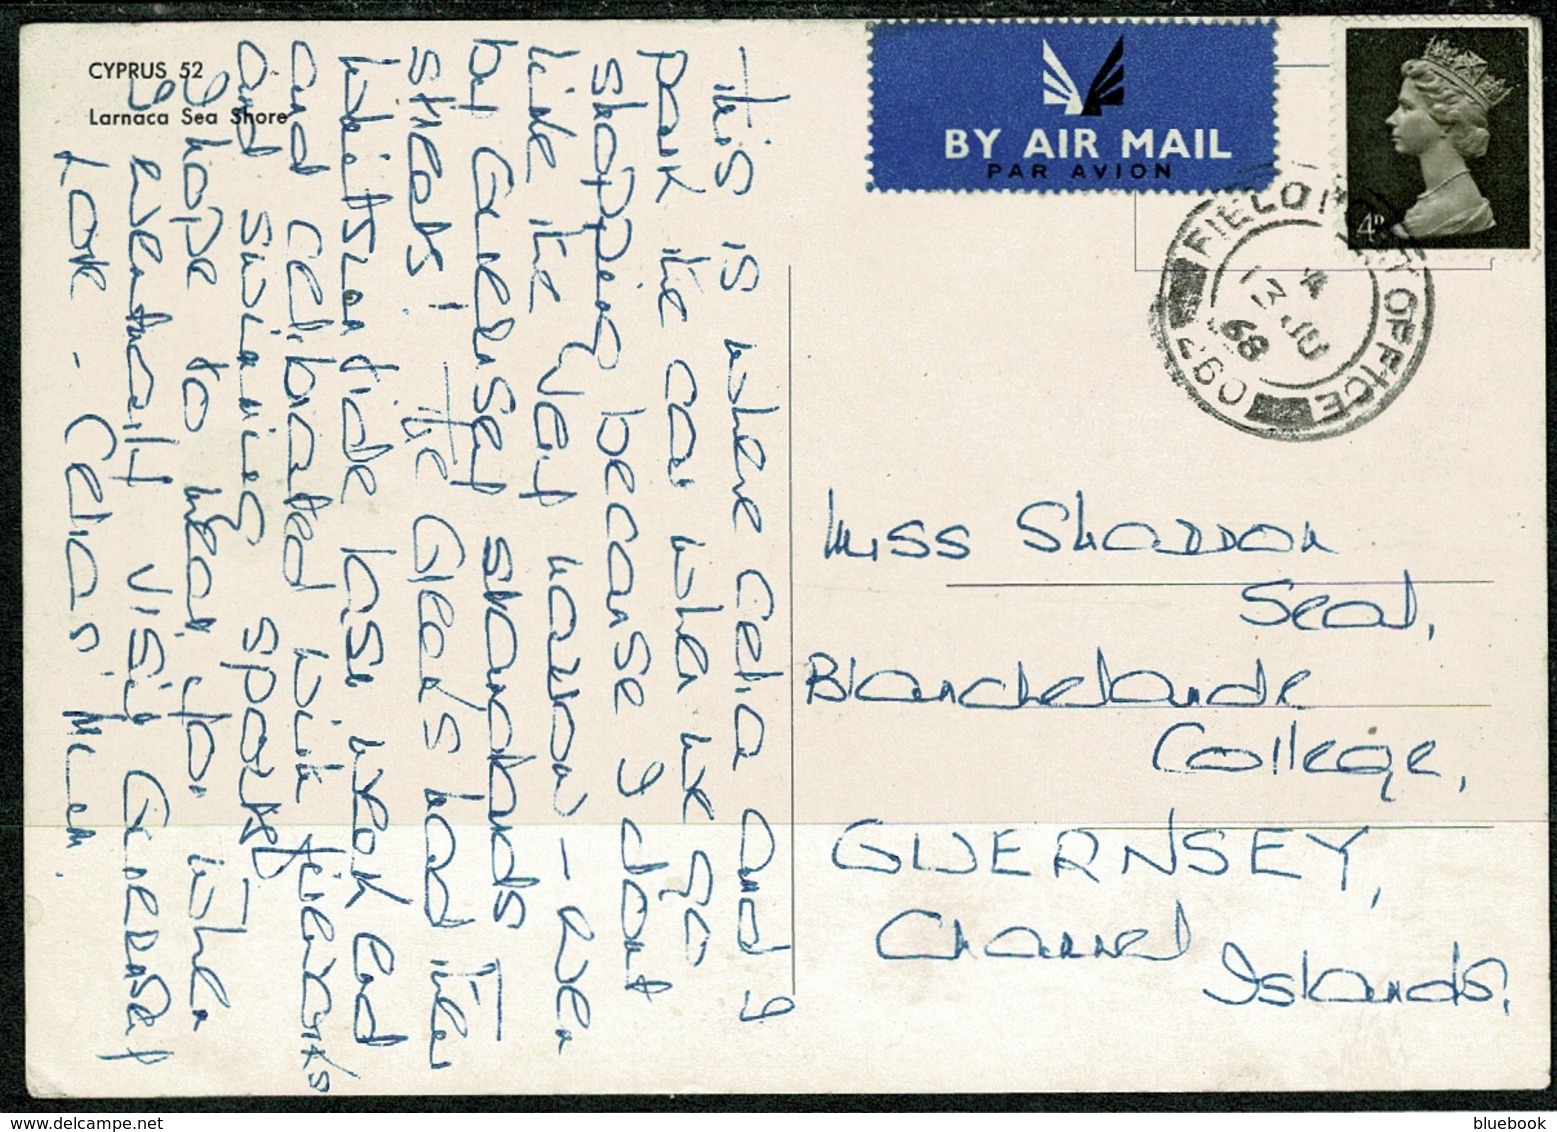 CYPRUS 52
Larnaca Sea Shore
BY AIR MAIL
PAR AVION
4D
FIELD POST OFFICE
13 JU
68
This is where Celia and I
park the car when we go
shopping because I dont
like the very narrow – even
by Guernsey standards –
streets! The Greeks had their
Whitsuntide last week end
and celebrated with fireworks
and swimming sports!
I hope to hear you when
I eventually visit Guernsey
Love – Celia's Mum.
Miss Sharron
Seal,
Blanchelande
College,
GUERNSEY,
Channel
Islands,
bluebook